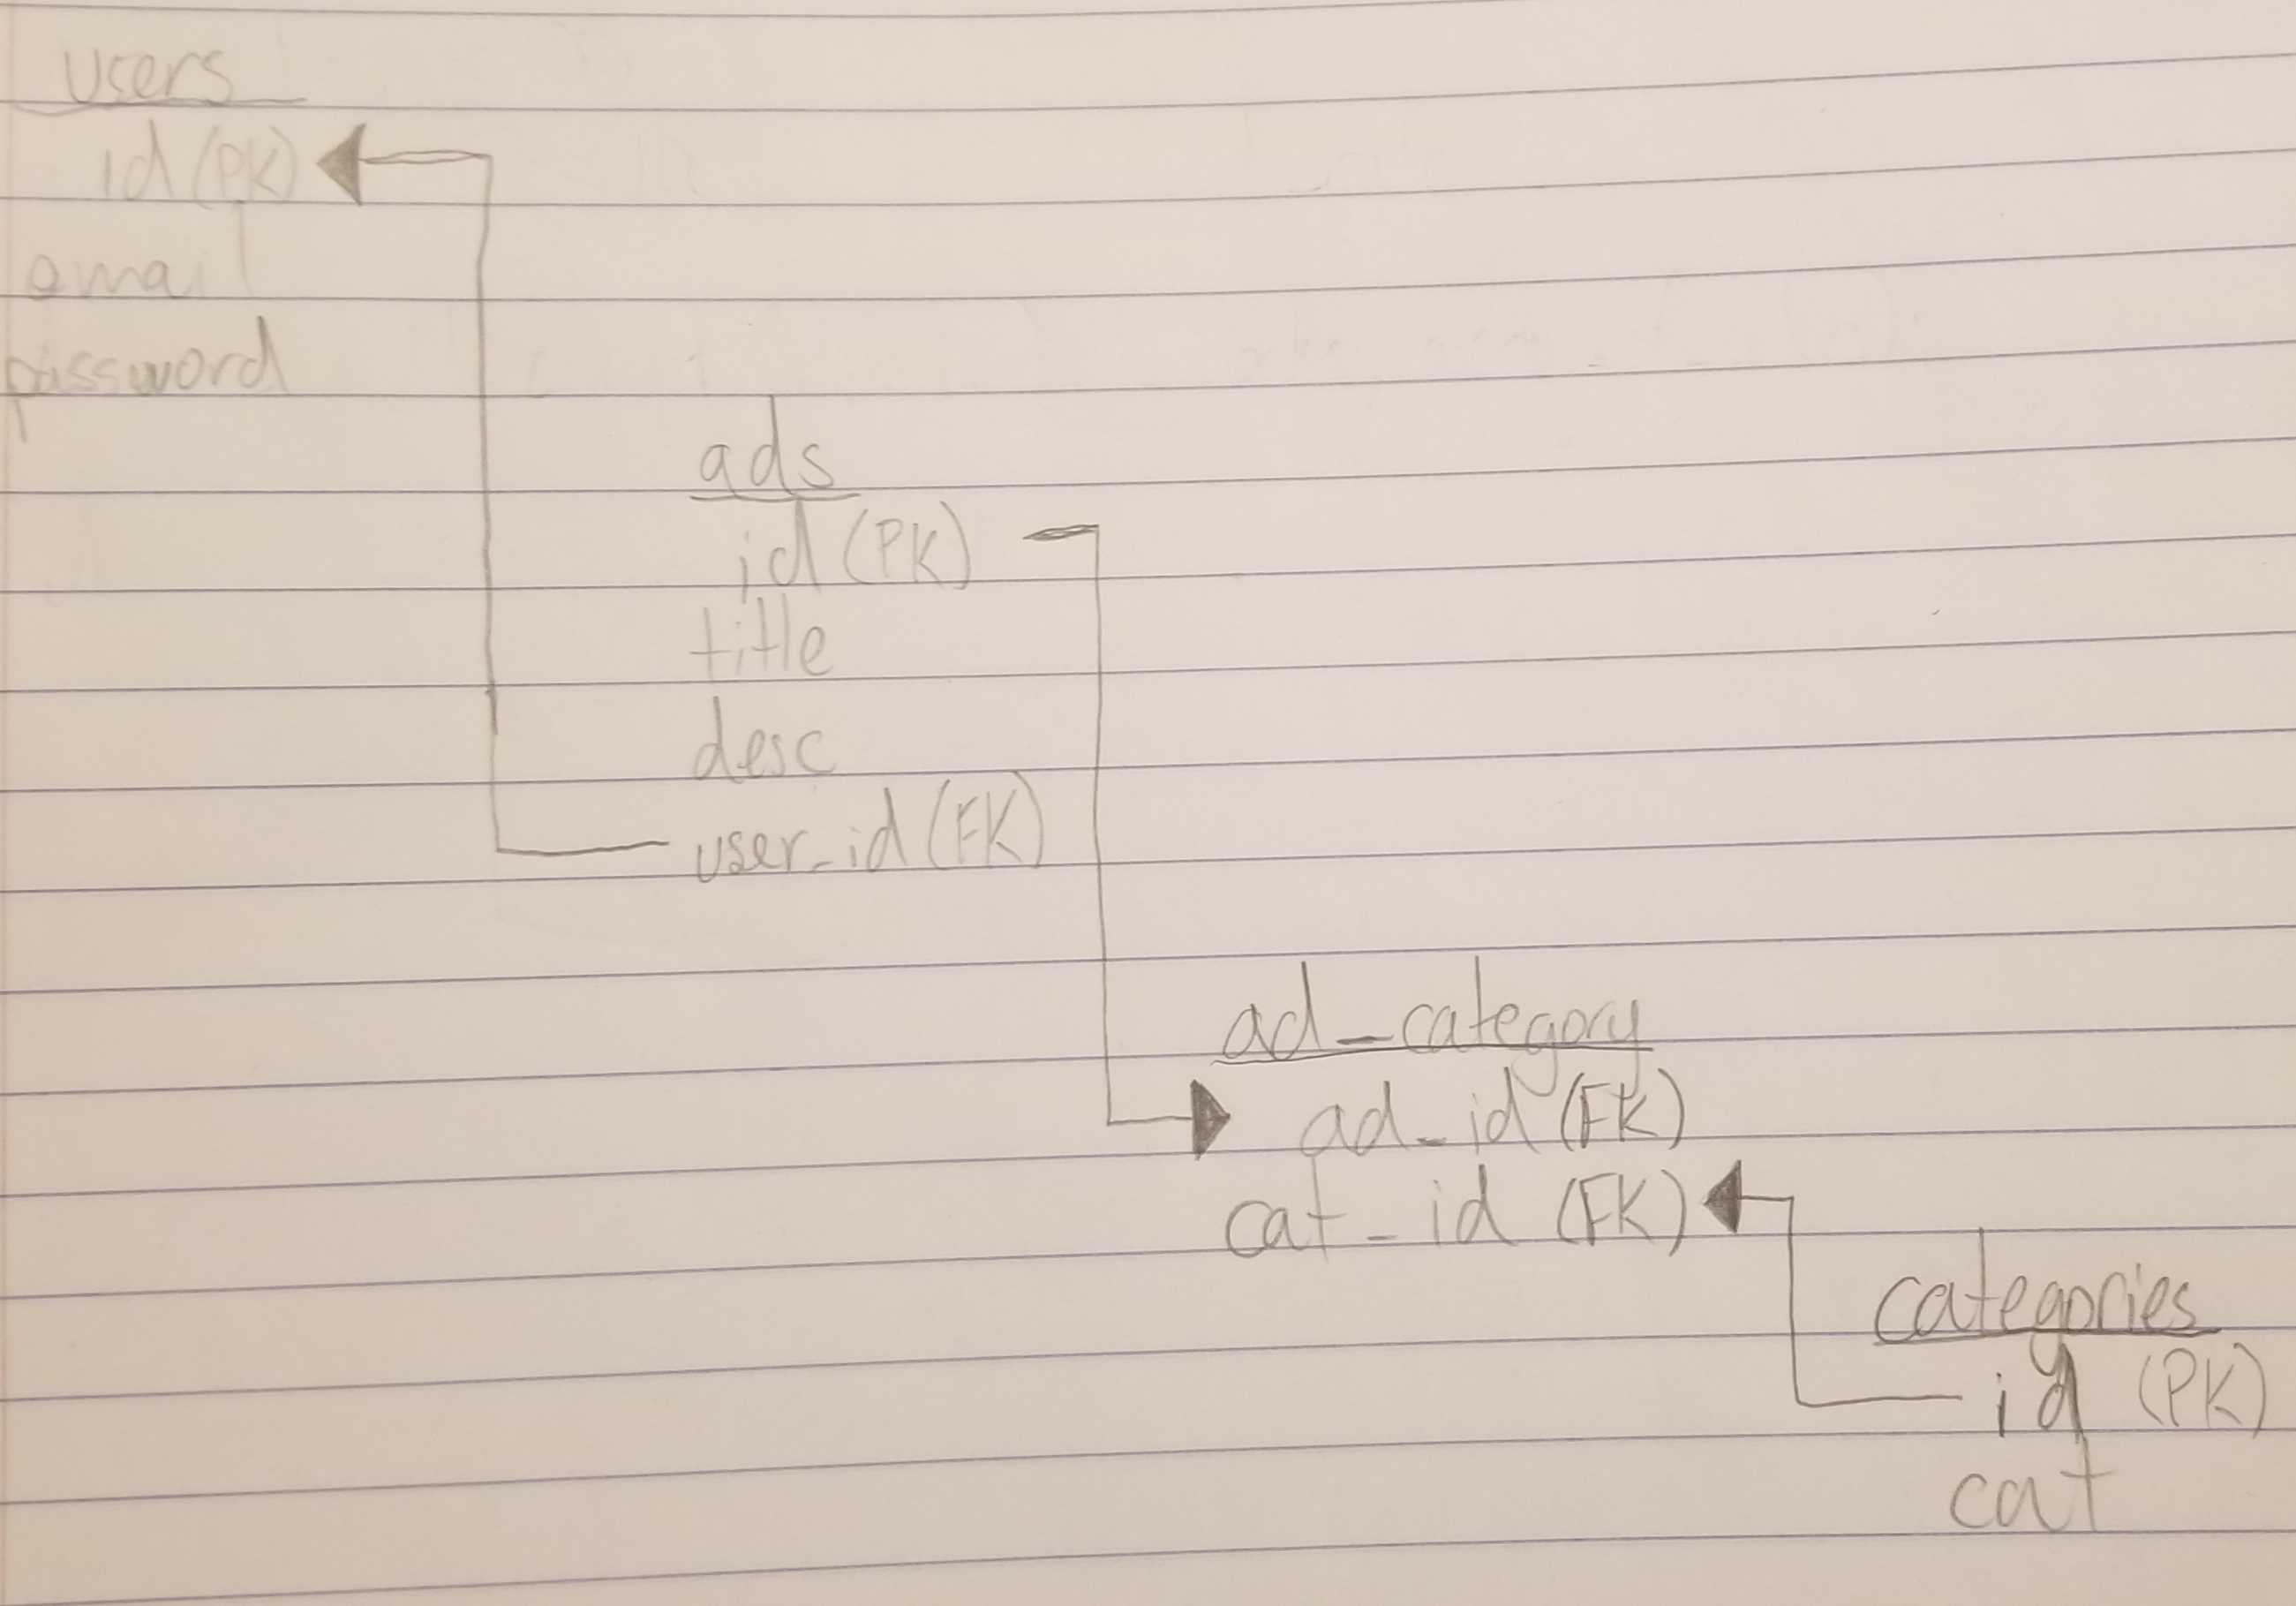 users
id (PK)
email
password
ads
id (PK)
title
desc
user_id (FK)
ad_category
ad_id (FK)
cat_id (FK)
categories
id (PK)
cat